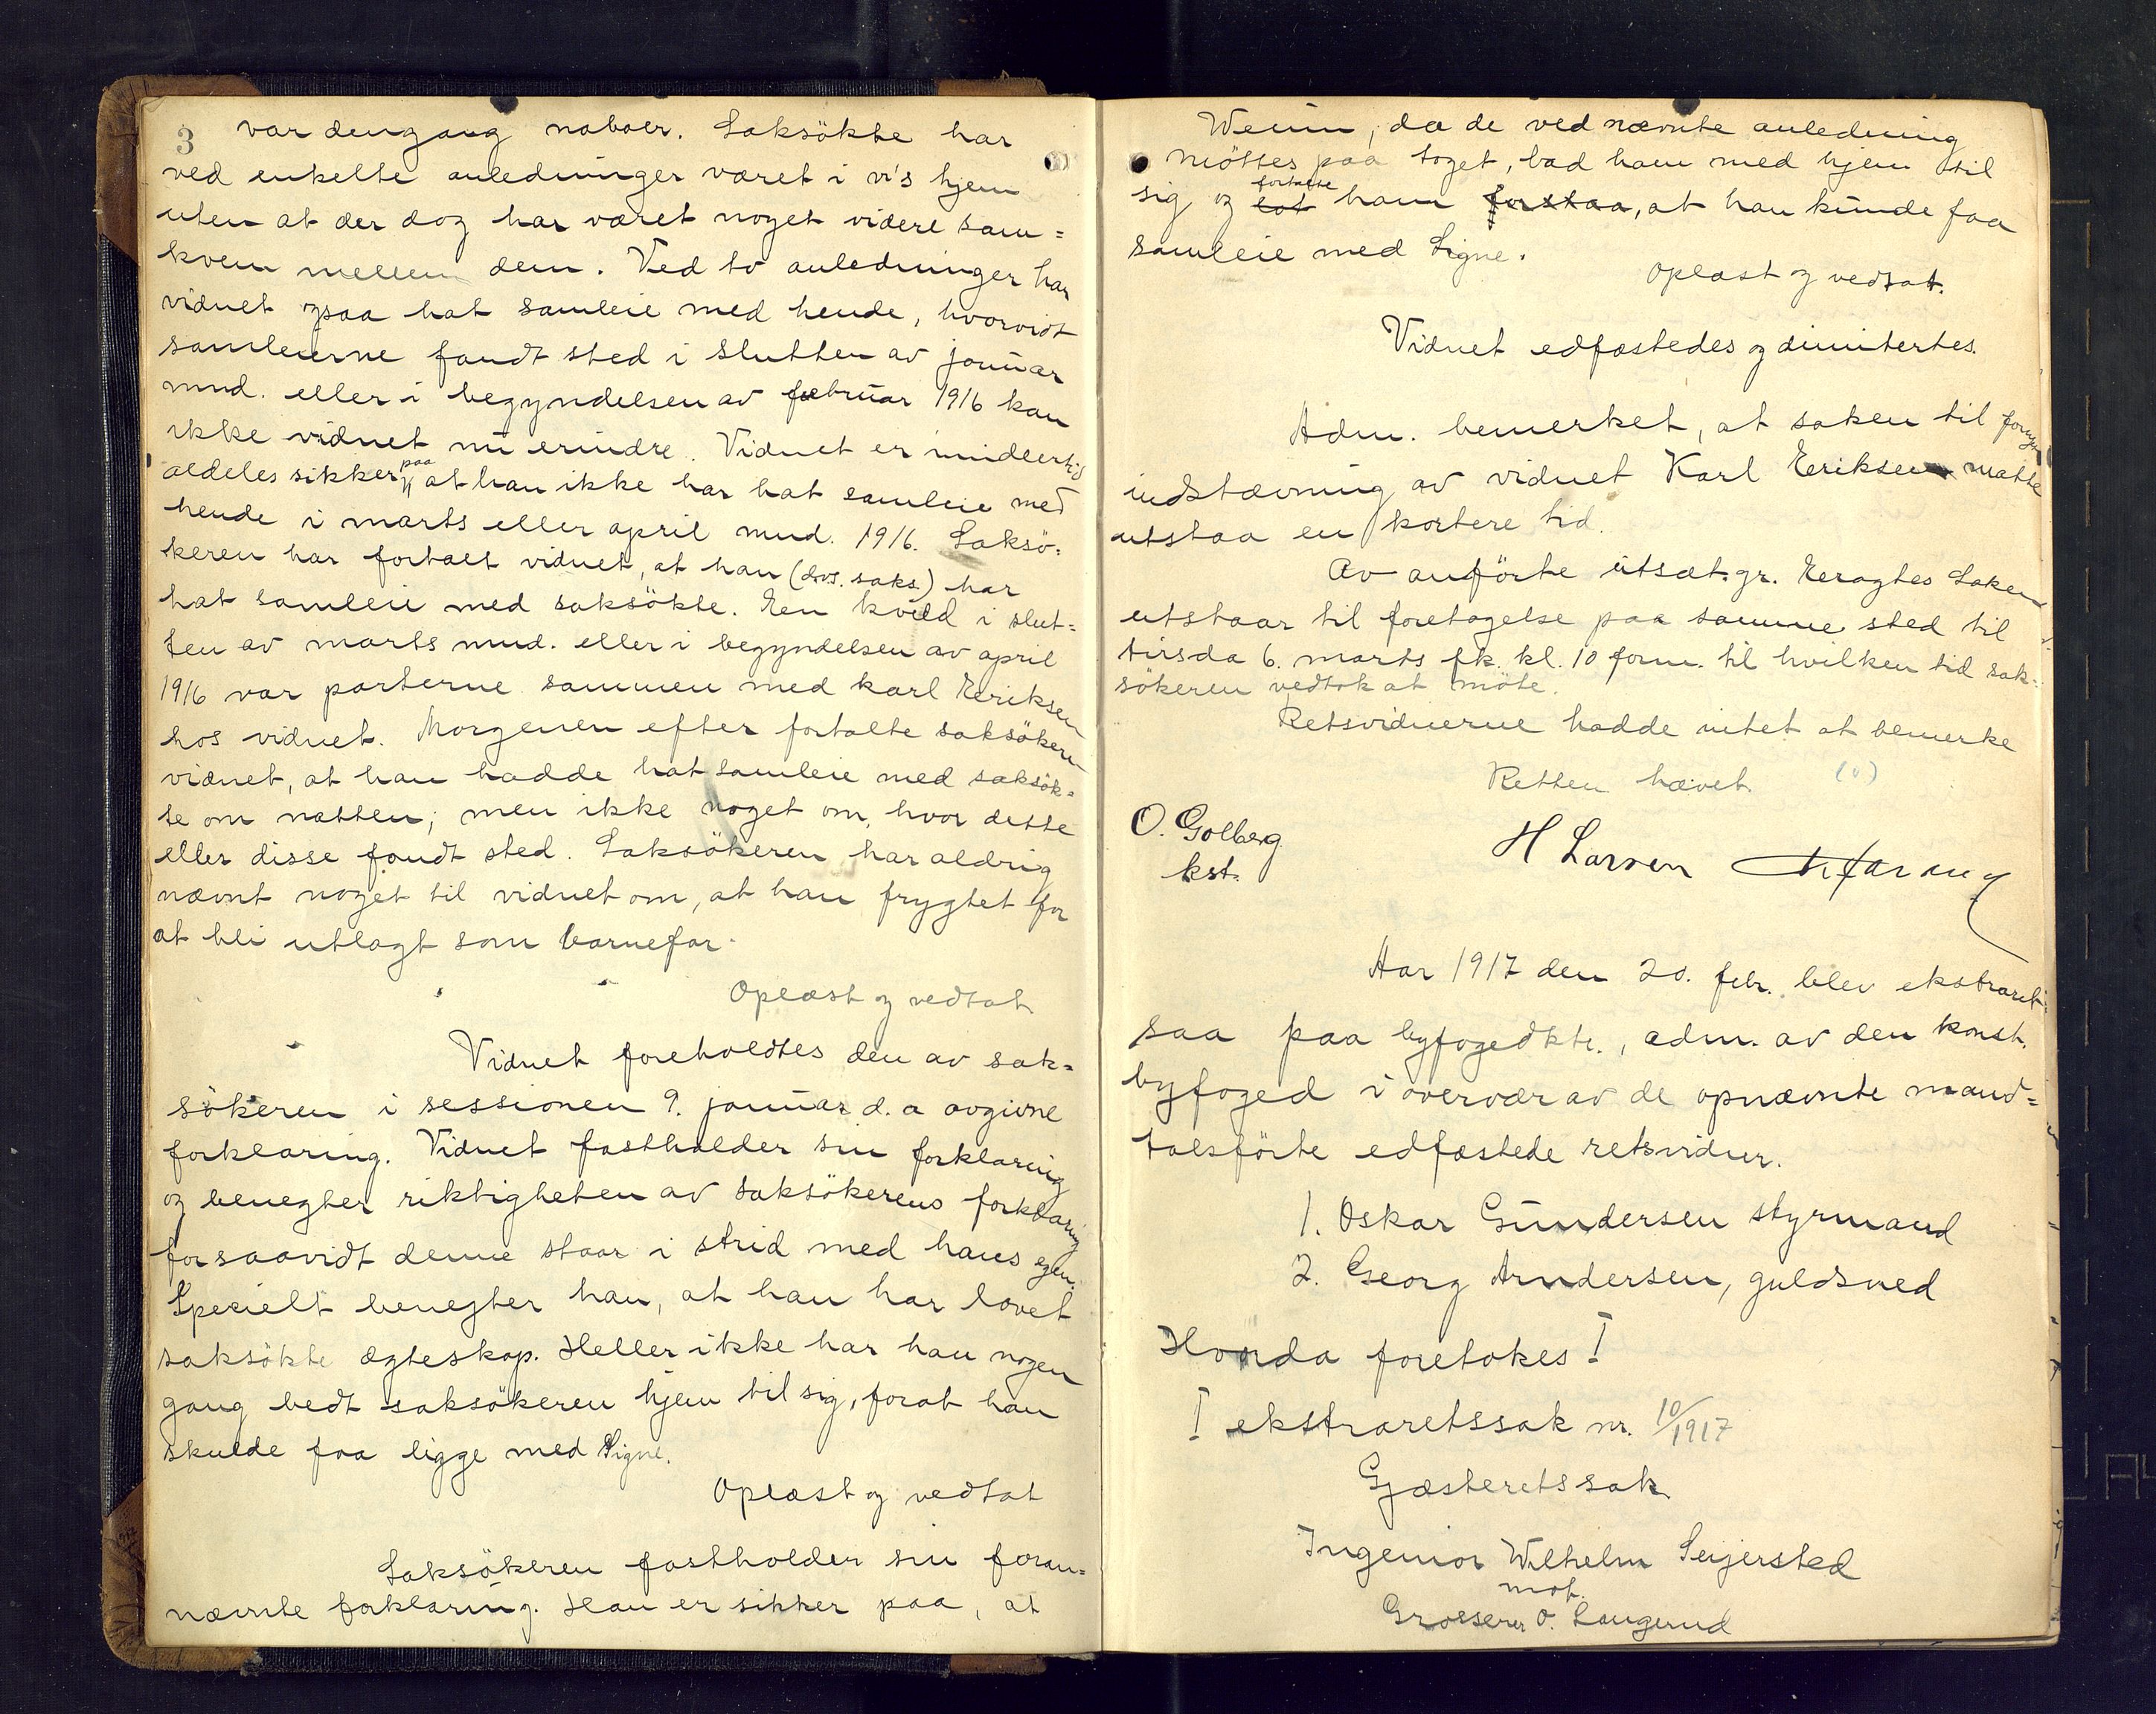 3 var dengang naboer. Saksökte har
ved enkelte anledninger været i vi's hjem
uten at der dog har været noget videre sam=
kvem mellem dem. Ved to anledninger har
vidnet ogsaa hat samleie med hende, hvorvidt
samleierne fandt sted i slutten av januar
mnd. eller i begyndelsen av februar 1916 kan
ikke vidnet nu erindre. Vidnet er imidlertid
aldeles sikker paa at han ikke har hat samleie med
hende i marts eller april mnd. 1916. Saksö=
keren har fortalt vidnet, at han (dvs. saks.) har
hat samleie med saksökte. Een kveld i slut=
ten av marts mnd. eller i begyndelsen av april
1916 var parterne sammen med Karl Eeriksen
hos vidnet. Morgenen efter fortalte saksökeren
vidnet, at han hadde hat samleie med saksök=
te om natten; men ikke noget om, hvor dette
eller disse fandt sted. Saksökeren har aldrig
nævnt noget til vidnet om, at han frygtet for
at bli utlagt som barnefar.
Oplæst og vedtat
Vidnet foreholdtes den av sak=
sökeren i sessionen 9. januar d. a avgivne
forklaring. Vidnet fastholder sin forklaring
og benegter riktigheten av saksökerens forklaring
forsaavidt denne staar i strid med hans egen.
Specielt benegter han, at han har lovet
saksökte ægteskap. Heller ikke har han nogen
gang bedt saksökeren hjem til sig, forat han
skulde faa ligge med Signe.
Oplæst og vedtat
Saksökeren fastholder sin foran=
nævnte forklaring. Han er sikker paa, at
da de ved nævnte anledning
möttes paa toget, bad ham med hjem til
sig og lot fortalte ham forstaa, at han kunde faa
samleie med Signe.
Oplæst og vedtat.
Vidnet edfæstedes og dimitertes.
Adm. bemerket, at saken til
indstævning av vidnet Karl Eeriksen maatte
utstaa en kortere tid.
Av anförte utsæt.gr. Eeragtes Saken
utstaar til foretagelse paa samme sted til
tirsda 6. marts fk. kl. 10 form. til hvilken tid sak=
sökeren vedtok at möte.
Retsvidnerne hadde intet at bemerke
Retten hævet. (v)
O. Solberg
kst.
H Larsen
Aar 1917 den 20. febr. blev ekstraret
saa paa byfogedkts., adm. av den konst.
byfoged i overvær av de opnævnte mand=
talsförte edfæstede retsvidner.
1. Oskar Gundersen styrmand
2. Georg Andersen, guldsmed
Hvorda foretokes!
I ekstraretssak nr. 10/1917
Gjæsteretssak
Ingeniör Wilhelm Seyersted
mot.
Grosserer O. Langerud